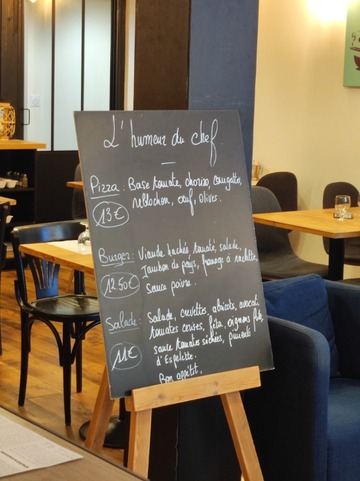 L'humeur du chef
Pizza : Base tomate, chorizo, courgettes,
reblochon, œuf, olives.
13€
Burger : Viande hachée, tomate, salade,
Jambon de pays, fromage à raclette,
sauce poivre.
12.50€
Salade : Salade, crevettes, abricots, avocat,
tomates cerises, féta, oignons frits,
sauce tomates séchées, piments
d'Espelette.
11€
Bon appétit.